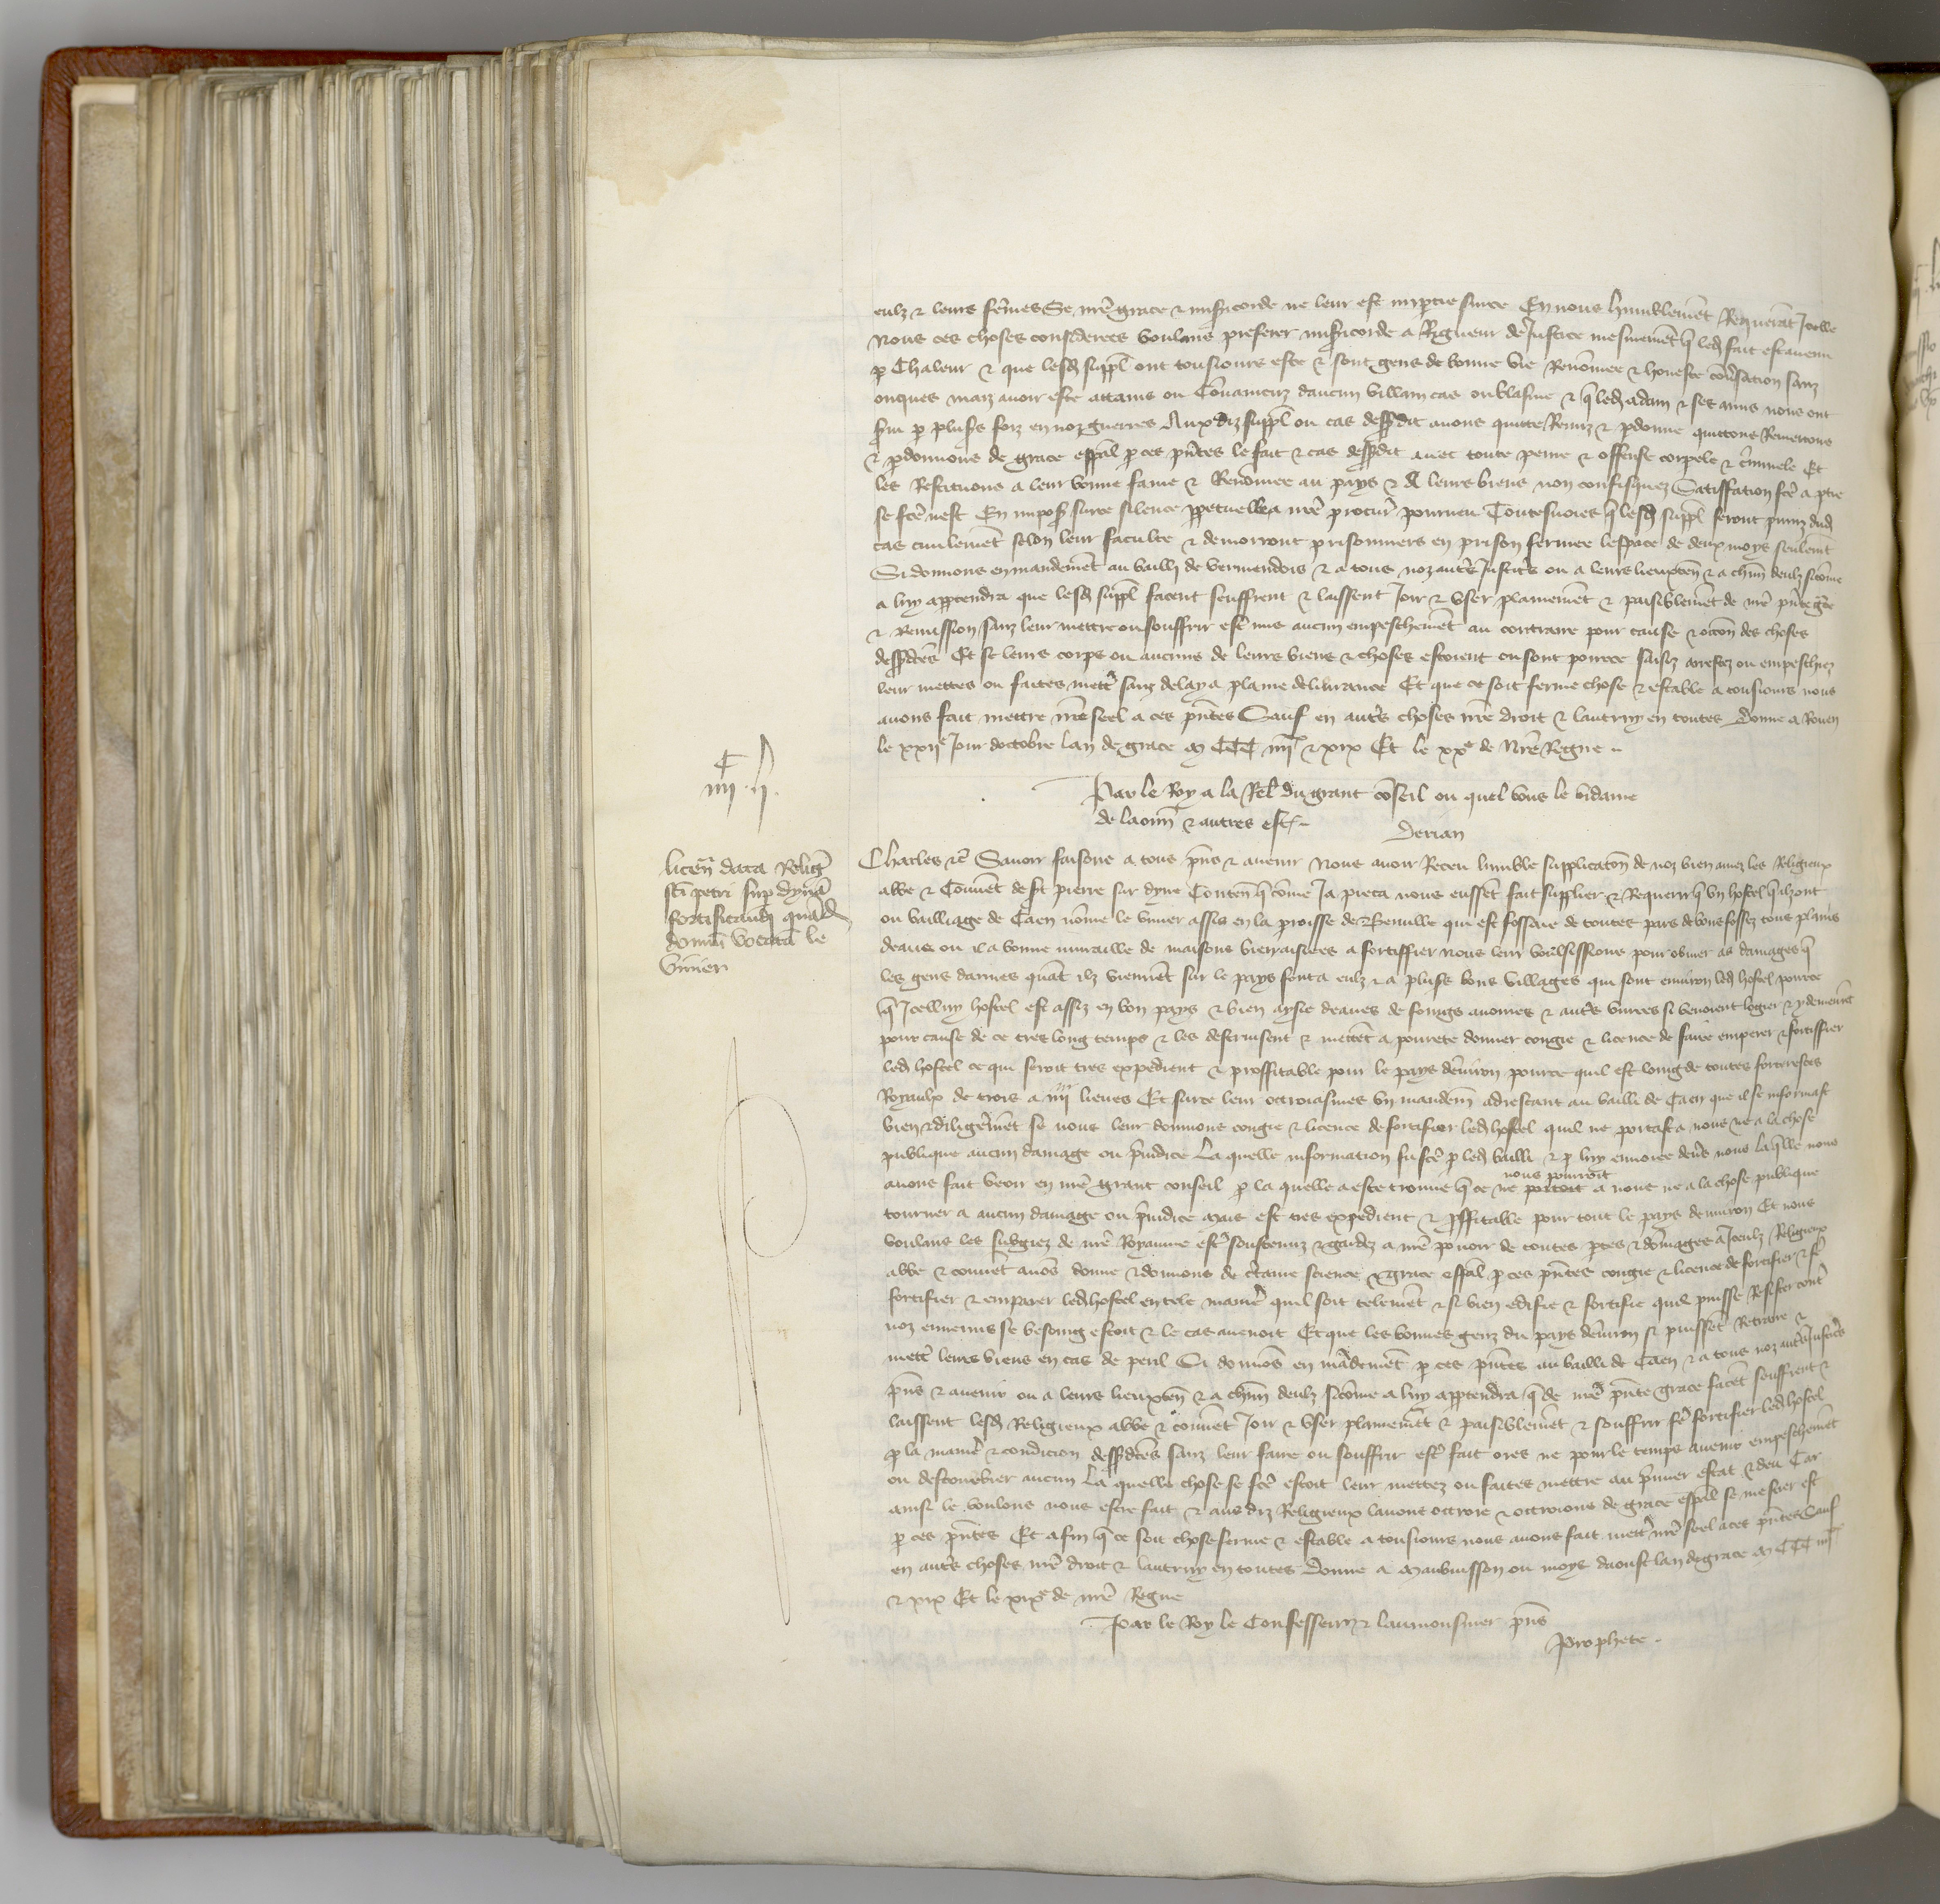 eulz & leurs fem̄es Se nr̄e grace & misericorde ne leur est impartie surce En nous humblemēt Requerāt Icelle
Nous ces choses considerees voulans preferer misericorde a Rigueur de Justice mesmemēt q̄ led fait est avenu
p Chaleur & que lesd suppl ont tousiours este & sont gens de bonne vie Renōmee & honeste cōversation sanz
onques mais avoir este attains ou Convaincuz daucun villain cas ou blasme & q̄ led adam & ses amis nous ont
servi p plus̄s foiz en noz guerres Aux diz suppl ou cas dess̄dit avons quitte Remiz & pdonne quittons Remettons
& pdonnons de grace esp̄al p ces pn̄tes le fait & cas dess̄dit avec toute peine & offense corpele & crīminele Et
les Restituons a leur bonne fame & Renōmee au pays & a leurs biens non confisquez Satisffation fc̄e a ptie
se fc̄e nest En impos̄ surce silence ppetuelle a nr̄e procur̄ pourveu Toutesvoies q̄ lesd suppl seront puniz dud
cas civilemēt selon leur faculte & demorront prisonniers en prison fermee lespace de deux moys seulemt
Si donnons en mandemēt au bailli de vermendois & a tous noz autr̄s Justic̄s ou a leurs lieuxten̄ & a chūn deulz sicōme
a luy appartendra que lesd suppl facent seuffrent & laissent Joir & user plainemēt & paisiblemēt de nr̄e pn̄te gr̄ce
& Remission sanz leur mettre ou souffrir estr̄ mis aucun empeschemēt au contraire pour cause & occōn des choses
dess̄dictes Et se leurs corps ou aucuns de leurs biens & choses estoient ou sont pource saisiz arrestez ou empeschiez
leur mettes ou faites mettr̄ sanz delay a plaine delivrance Et que ce soit ferme chose & estable a tousiours nous
avons fait mettre nr̄e seel a ces pn̄tes Sauf en autr̄s choses nr̄e droit & lautruy en toutes Donne a Rouen
le xxije Jour doctobre lan de grace M CCC iiijxx & xix Et le xxe de Nr̄e Regne
Par le Roy a la Rel̄ du grant cōseil ou quel vous le vidame
de laonn & autres estiez
Derian
iiij C
Charles &c Savoir faisons a tous pn̄s & avenir Nous avoir Receu lumble supplicatōn de noz bien amez les Religieux
abbe & Couvēt de st pierre sur dyne Conten̄ q̄ cōme Ja pieca nous eussēt fait supplier & Requerir q̄ un hostel q̄ ilz ont
ou bailliage de Caen nōme le vivier assis en la proisse de Benville qui est fossoie de toutes pars de bons fossez tous plains
deaue ou il a bonne muraille de maisons bien aisiees a fortiffier nous leur voulsissions pour obvier as damages q̄
les gens darmes quāt ilz viennēt sur le pays font a eulz & a plus̄s bons villages qui sont environ led hostel pource
q̄ Icelluy hostel est assiz en bon pays & bien aysie deaues de foings avoines & autr̄s vivres si venoient logier & y demeurēt
pour cause de ce tres long temps & les destruisent & mettēt a povrete donner congie & licence de faire emparer & fortiffier
led hostel ce qui seroit tres expedient & proffitable pour le pays denviron pource quil est loing de toutes forteresses
Royaulx de trois a iiij lieues Et surce leur octroiasmes un mandem̄ adrescant au bailli de Caen que il se informast
bien & diligēmēt se nous leur donnions congie & licence de fortifier led hostel quil ne portast a nous ne a la chose
publique aucun damage ou preiudice La quelle informacion fu fc̄e p led bailli & p luy envoiee dev̄s nous La q̄lle nous
avons fait veoir en nr̄e grant conseil p la quelle a este trouve q̄ ce ne portoit nous pourroit a nous ne a la chose publique
tourner a aucun damage ou preiudice Mais est tres expedient & pffitable pour tout le pays denviron Et nous
voulans les subgiez de nr̄e Royaume estr̄ soustenuz & gardez a nr̄e povoir de toutes ptes & dōmages a Iceulz Religieux
abbe & convēt avōs donne & donnons de c̄taine science & grace esp̄al p ces pn̄tes congie & licence de fortifier & fr̄
fortifier & emparer led hostel en tele manier̄ quil soit telemēt & si bien edifie & fortifie quil puisse Resister contr̄
noz ennemis se besoing estoit & le cas avenoit Et que les bonnes genz du pays denviron si puissēt Retraire &
mettr̄ leurs biens en cas de peril Si donnōs en mādemēt p ces pn̄tes au bailli de Caen & a tous noz autr̄s Justic̄s
pn̄s & avenir ou a leurs lieuxten̄ & a chūn deulz sicōme a luy appartendra q̄ de nr̄e pn̄te grace facēt seuffrent &
laissent lesd Religieux abbe & convēt Joir & user plainemēt & paisiblemēt & souffrir fr̄ fortifier led hostel
p la manier̄ & condicion dess̄dictes sanz leur faire ou souffrir estr̄ fait ores ne pour le temps avenir empeschemēt
ou destourbier aucun La quelle chose se fc̄e estoit leur mettez ou faites mettre au premier estat & deu Car
ainsi le voulons nous estre fait & aus diz Religieux lavons octroie & octroions de grace esp̄al se mestier est
p ces pn̄tes Et afin q̄ ce soit chose ferme & estable a tousiours nous avons fait mettr̄ nr̄e seel a ces pn̄tes Sauf
en autr̄s choses nr̄e droit & lautruy en toutes Donne a Maubuisson ou moys daoust lan de grace M CCC iiijxx
& xix Et le xixe de nr̄e Regne
Par le Roy le Confesseur & laumosnier pn̄s
Prophete
licen̄ data Reliḡ
sc̄i petri sup dyuā
fortificandi quād
domū vocatā le
vivier